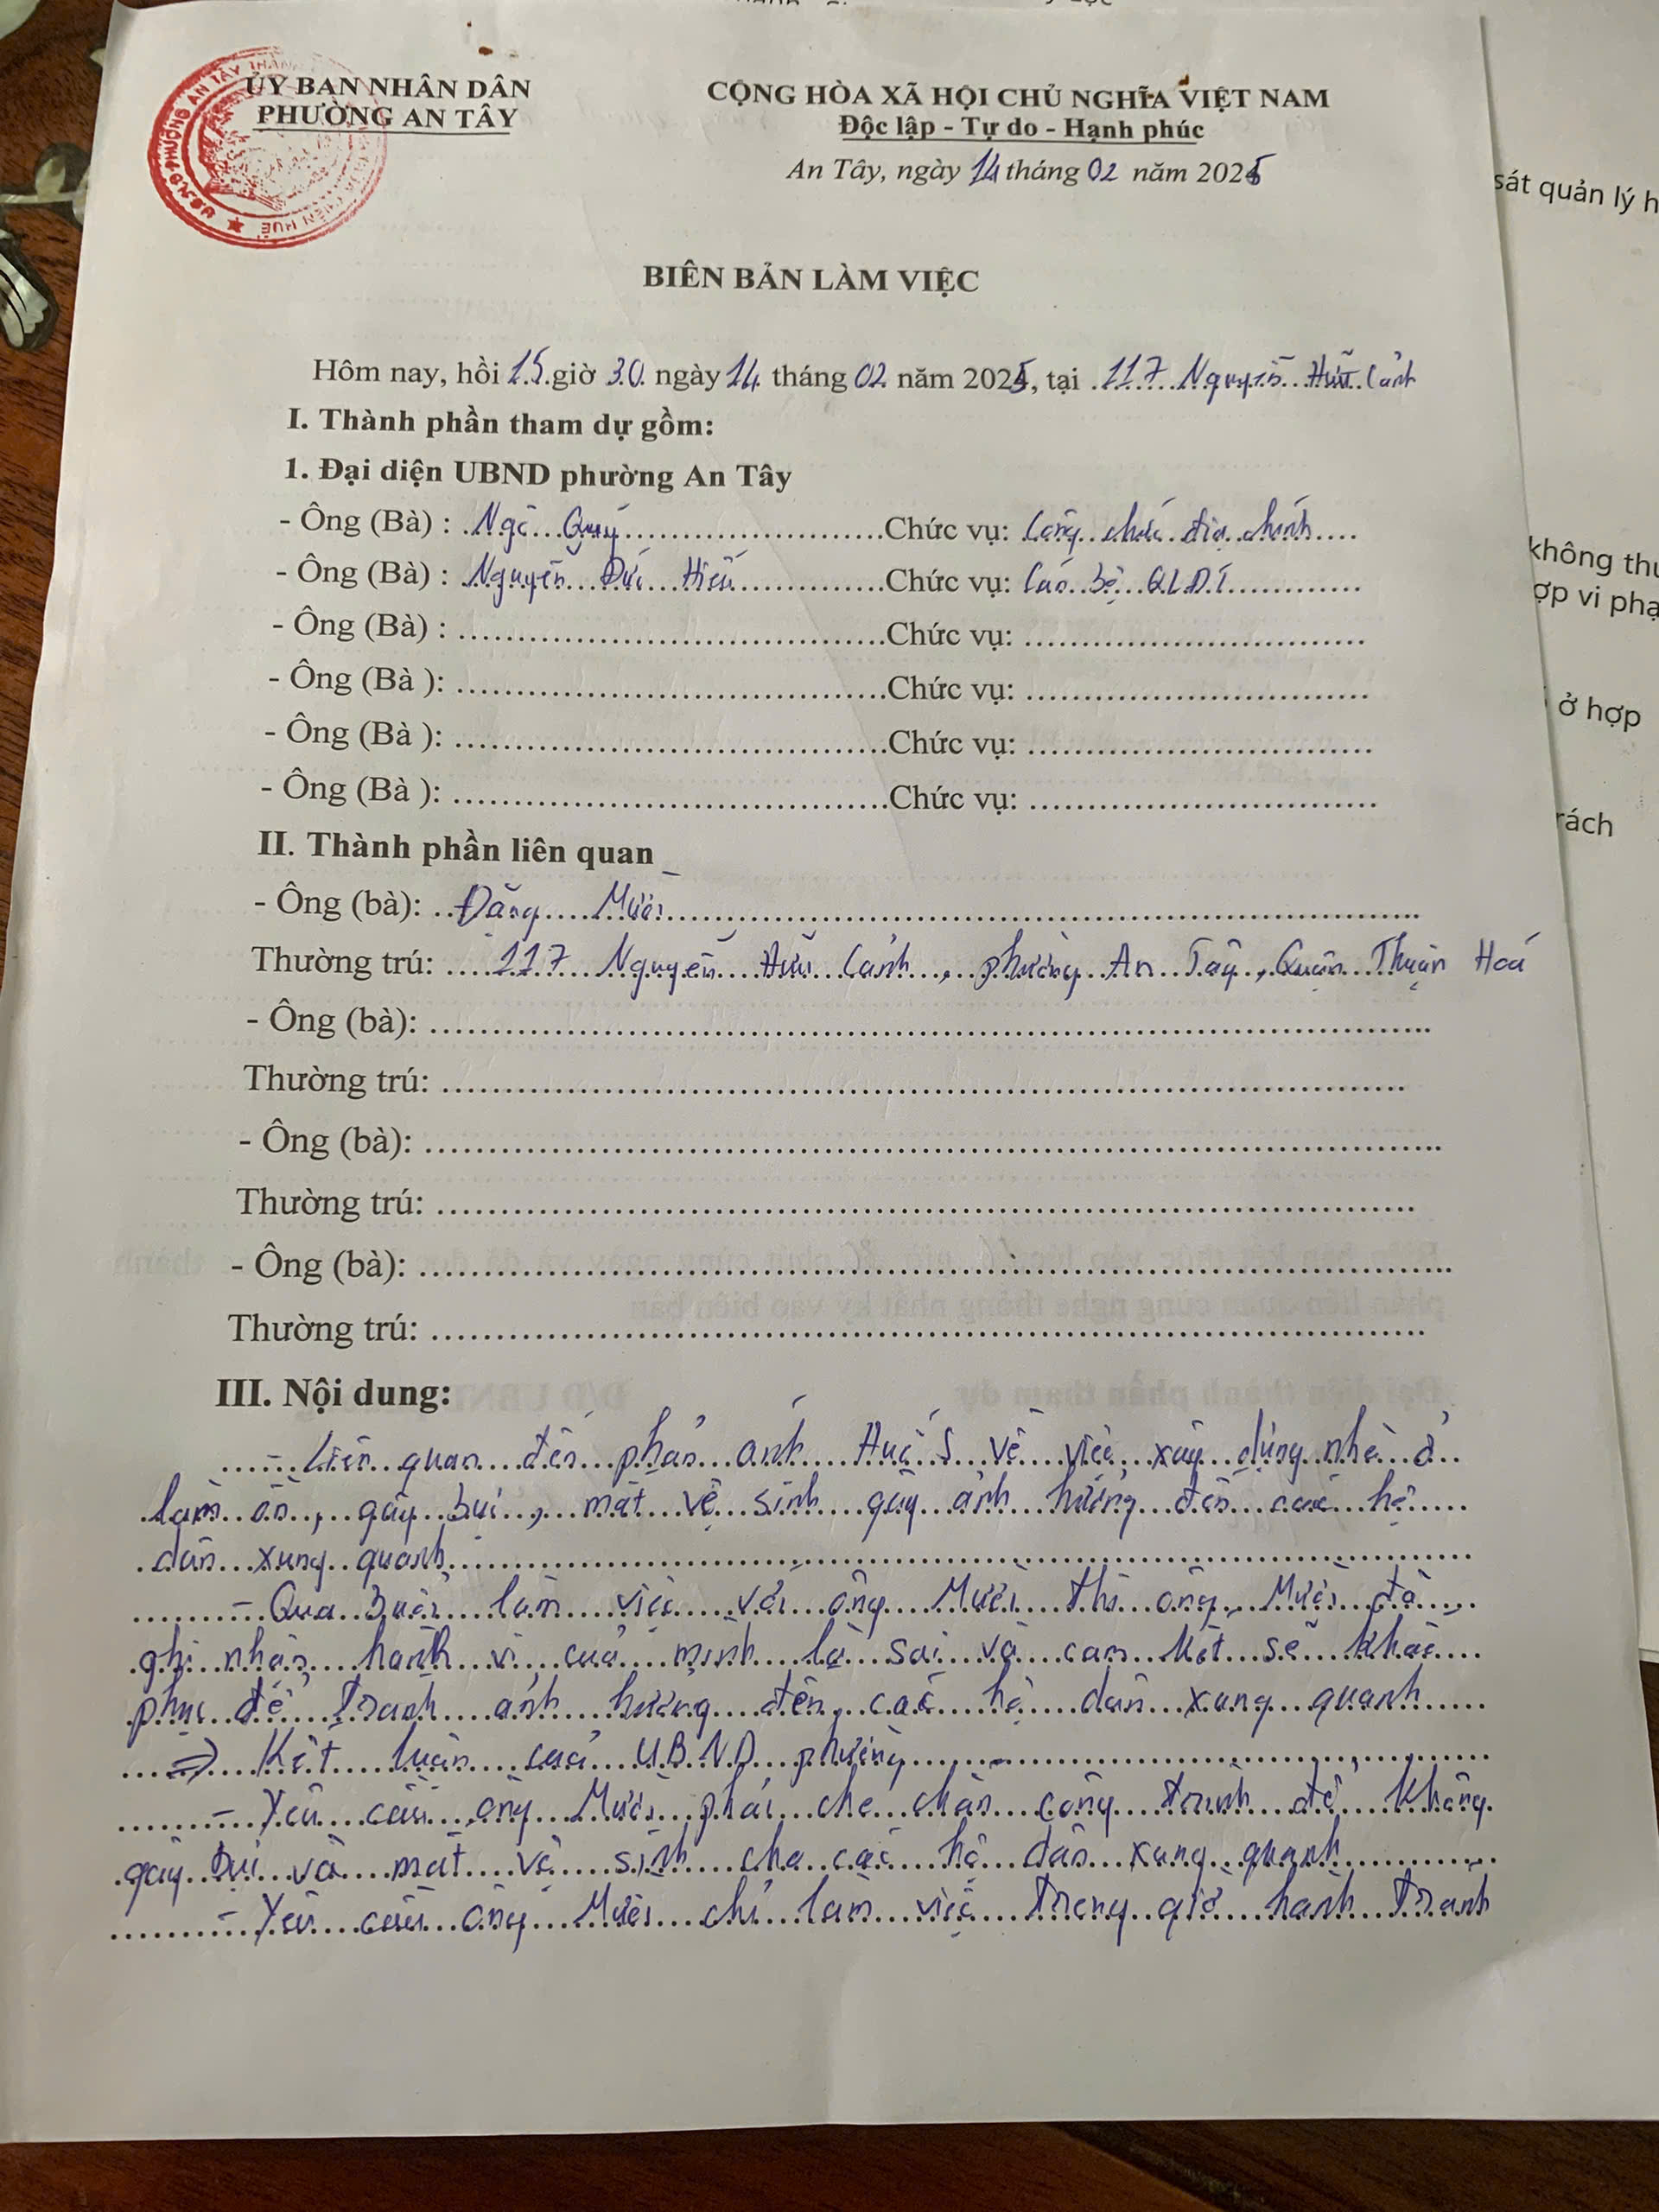 ỦY BAN NHÂN DÂN
PHƯỜNG AN TÂY
CỘNG HÒA XÃ HỘI CHỦ NGHĨA VIỆT NAM
Độc lập - Tự do - Hạnh phúc
An Tây, ngày 14 tháng 02 năm 2025
BIÊN BẢN LÀM VIỆC
Hôm nay, hồi 15 giờ 30 ngày 14 tháng 02 năm 2025, tại 117 Nguyễn Hữu Cảnh
I. Thành phần tham dự gồm:
1. Đại diện UBND phường An Tây
- Ông (Bà) : Ngô Quý Chức vụ: Công chức địa chính
- Ông (Bà) : Nguyễn Đức Hiếu Chức vụ: Cán bộ QLĐT
- Ông (Bà) : Chức vụ:
- Ông (Bà ): Chức vụ:
- Ông (Bà ): Chức vụ:
- Ông (Bà ): Chức vụ:
II. Thành phần liên quan
- Ông (bà): Đặng Mười
Thường trú: 117 Nguyễn Hữu Cảnh, phường An Tây, Quận Thuận Hoá
- Ông (bà):
Thường trú:
- Ông (bà):
Thường trú:
- Ông (bà):
Thường trú:
III. Nội dung:
- Liên quan đến phản ánh Huế S về việc xây dựng nhà ở
làm ồn, gây bụi, mất vệ sinh gây ảnh hưởng đến các hộ
dân xung quanh
- Qua buổi làm việc với ông Mười thì ông Mười đã
ghi nhận hành vi của mình là sai và cam kết sẽ khắc
phục để tránh ảnh hưởng đến các hộ dân xung quanh
=> Kết luận của UBND phường
- Yêu cầu ông Mười phải che chắn công trình để không
gây bụi và mất vệ sinh cho các hộ dân xung quanh
- Yêu cầu ông Mười chỉ làm việc trong giờ hành tránh
sát quản lý h
không thu
ợp vi phạ
ở hợp
rách